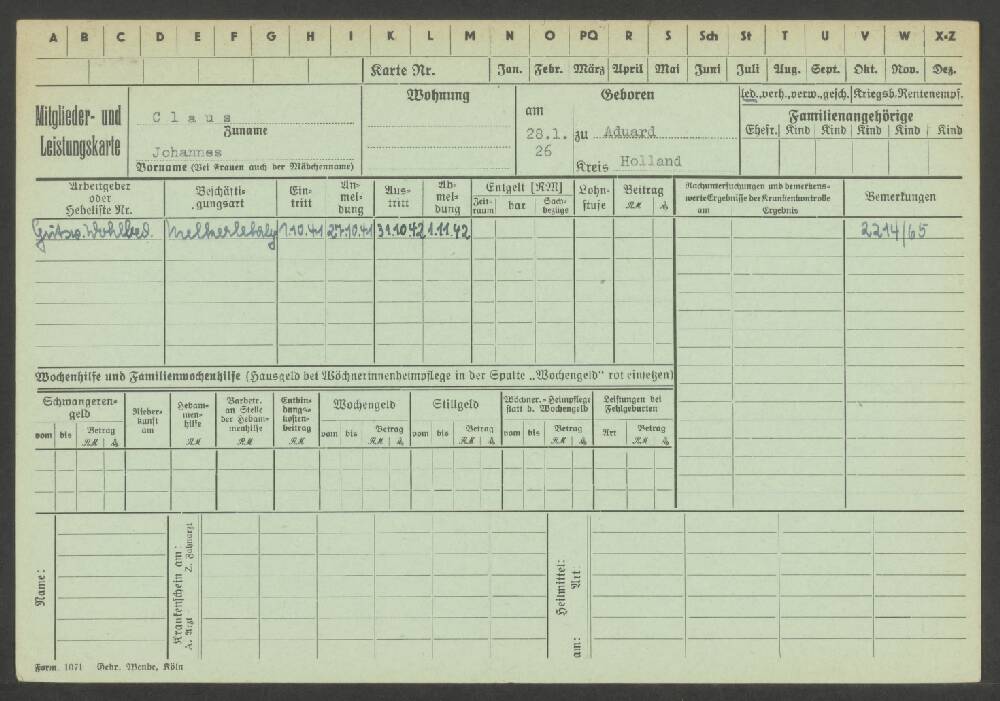 A B C D E F G H I K L M N O PQ R S Sch St T U V W X-Z
Karte Nr. Jan. Febr. März April Mai Juni Juli Aug. Sept. Okt. Nov. Dez.
Mitglieder- und Leistungskarte
Claus
Zuname
Johannes
Vorname (Bei Frauen auch der Mädchenname)
Wohnung
Geboren
am
28.1. zu Aduard
26
Kreis Holland
led., verh., verw., gesch. Kriegsb. Rentenempf.
Familienangehörige
Ehefr. Kind Kind Kind Kind Kind
Arbeitgeber oder Hebeliste Nr.
Beschäfti-gungsart
Ein-tritt
An-mel-dung
Aus-tritt
Ab-mel-dung
Entgelt [RM]
Zeit-raum bar Sach-bezüge
Lohn-stufe
Beitrag
RM
Nachuntersuchungen und bemerkens-
werte Ergebnisse der Krankenkontrolle
am Ergebnis
Bemerkungen
Gutsv. 1.10.41 27.10.41 31.10.42 1.11.42 2214/65
Wochenhilfe und Familienwochenhilfe (Hausgeld bei Wöchnerinnenheimpflege in der Spalte „Wochengeld“ rot einsetzen)
Schwangeren-geld
vom bis Betrag RM
Nieder-kunft am
Hebam-men-hilfe RM
Barbetr. an Stelle der Hebam-menhilfe RM
Entbin-dungs-kosten-beitrag RM
Wochengeld
vom bis Betrag RM
Stillgeld
vom bis Betrag RM
Wöchner.-Heimpflege statt d. Wochengeld
vom bis Betrag RM
Leistungen bei Fehlgeburten
Art Betrag RM
Name:
Krankenschein am:
A. Arzt Z. Zahnarzt
Heilmittel:
am: Art
Form. 1071 Gebr. Wende, Köln